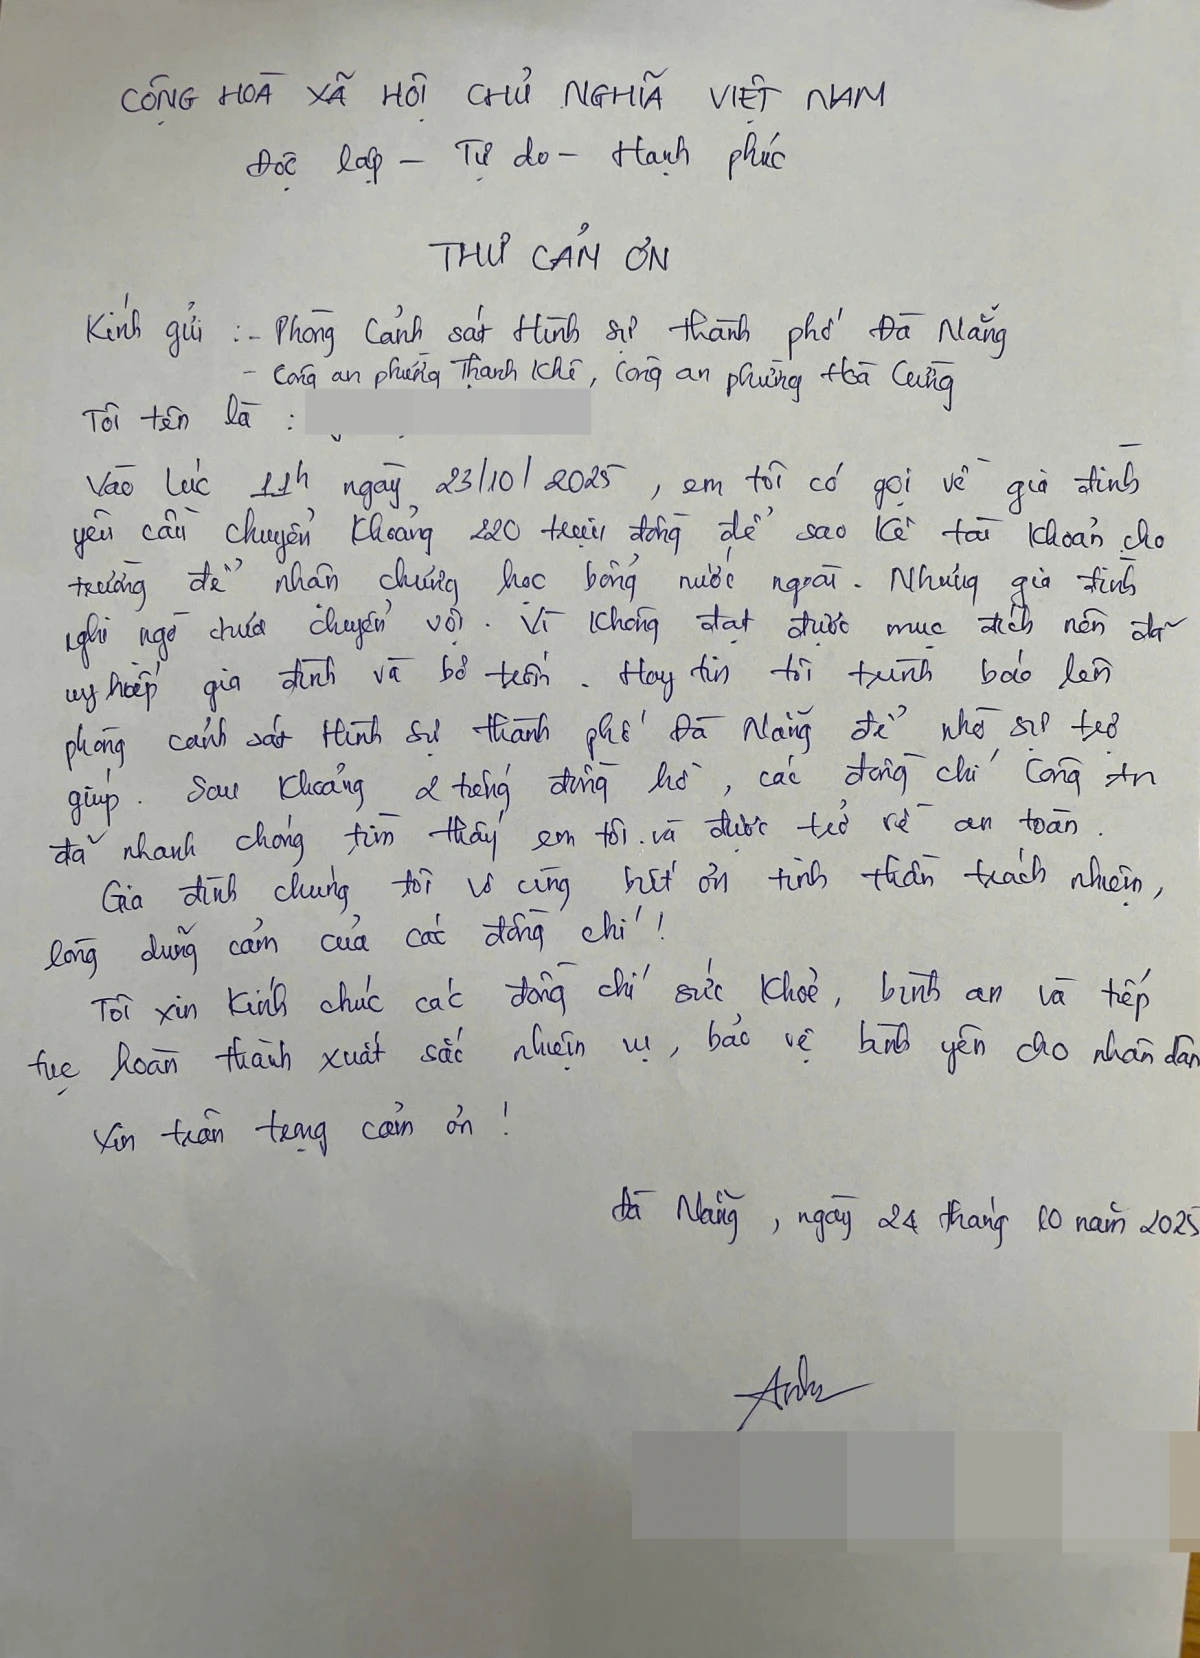 CỘNG HOÀ XÃ HỘI CHỦ NGHĨA VIỆT NAM
Độc lập - Tự do - Hạnh phúc
THƯ CẢM ƠN
Kính gửi : - Phòng Cảnh sát Hình sự thành phố Đà Nẵng
- Công an phường Thanh Khê, Công an phường Hoà Cường
Tôi tên là :
Vào lúc 11h ngày 23/10/2025, em tôi có gọi về gia đình
yêu cầu chuyển khoảng 220 triệu đồng để sao kê tài khoản cho
trường để nhân chứng học bổng nước ngoài. Nhưng gia đình
nghi ngờ chưa chuyển vội. Vì không đạt được mục đích nên đã
uy hiếp gia đình và bỏ trốn. Hay tin tôi trình báo lên
phòng cảnh sát Hình sự thành phố Đà Nẵng để nhờ sự trợ
giúp. Sau khoảng 2 tiếng đồng hồ, các đồng chí Công An
đã nhanh chóng tìm thấy em tôi và được trở về an toàn.
Gia đình chúng tôi vô cùng biết ơn tinh thần trách nhiệm,
lòng dũng cảm của các đồng chí!
Tôi xin kính chúc các đồng chí sức khoẻ, bình an và tiếp
tục hoàn thành xuất sắc nhiệm vụ, bảo vệ bình yên cho nhân dân
Xin trân trọng cảm ơn!
Đà Nẵng, ngày 24 tháng 10 năm 2025
Anh